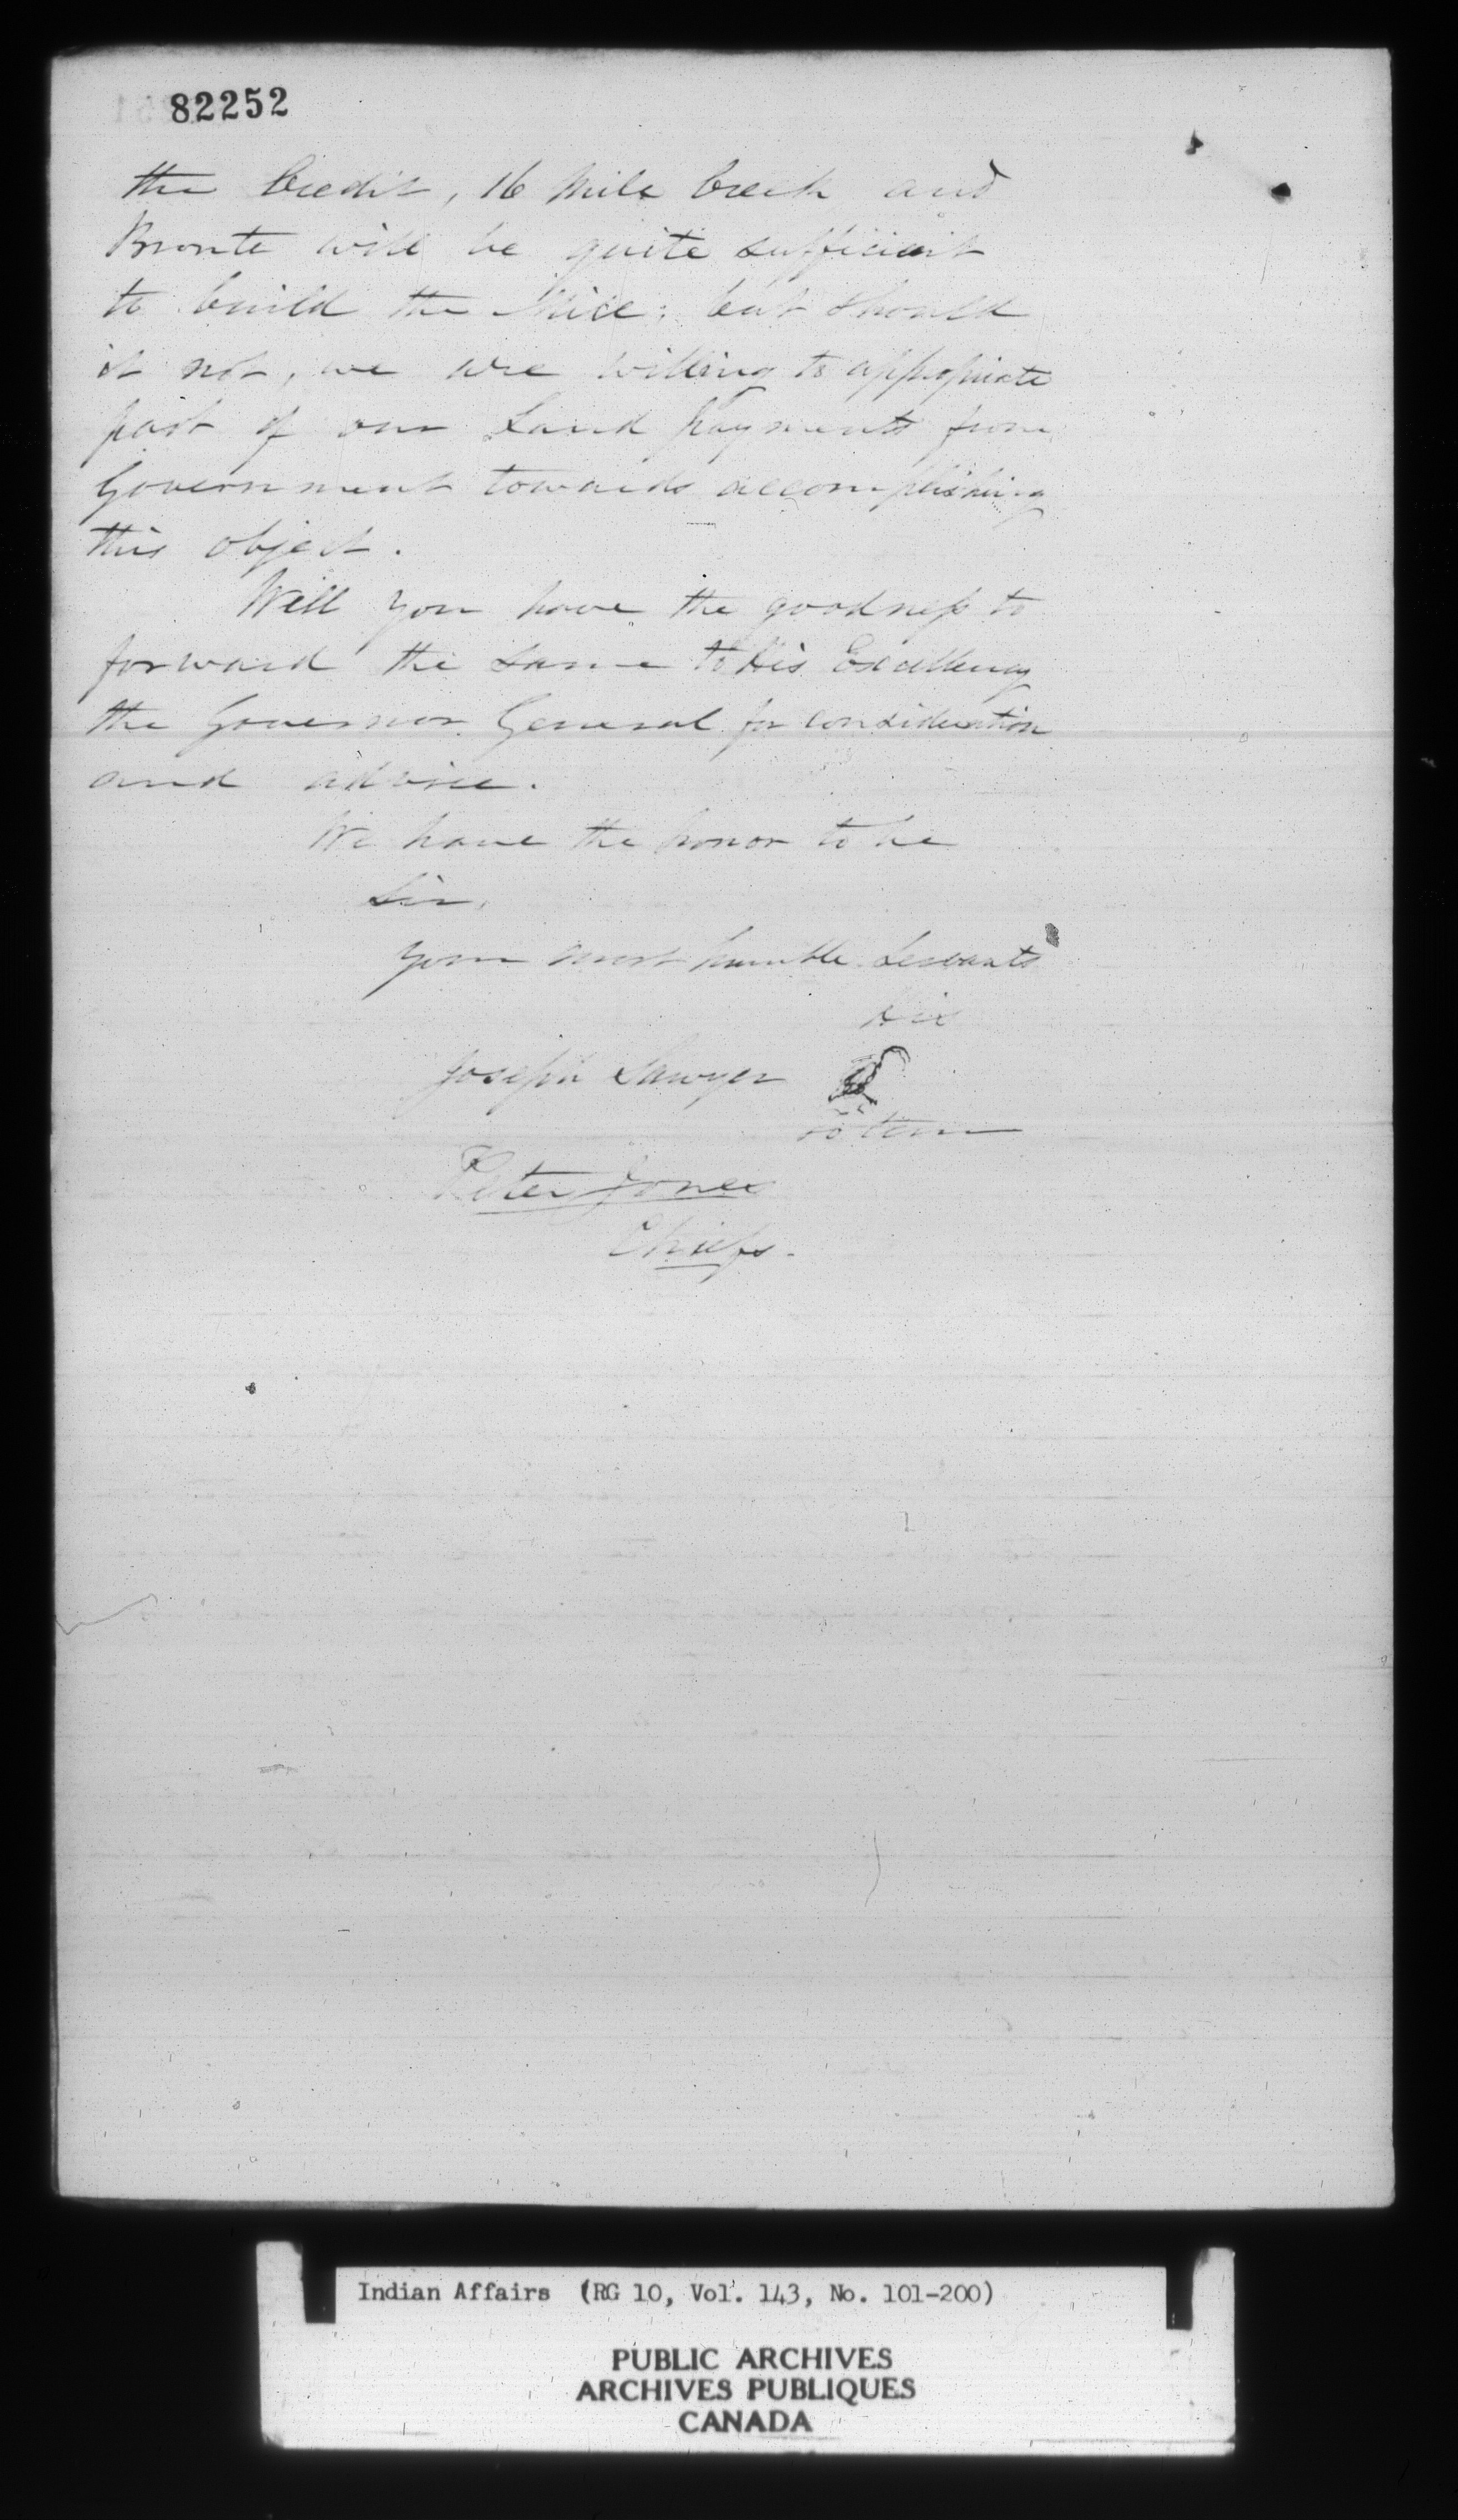 82252
the Credit, 16 Mile Creek and
Bronte will be quite sufficient
to build the Mill; but should
it not, we are willing to appropriate
part of our Land payments from
Government towards accomplishing
this object.
Will you have the goodness to
forward the same to His Excellency
the Governor General for consideration
and advice.
We have the honor to be
Sir,
your most humble Servants
his
Joseph Sawyer
totem
Peter Jones
Chiefs.
Indian Affairs (RG 10, Vol. 143, No. 101-200)
PUBLIC ARCHIVES
ARCHIVES PUBLIQUES
CANADA